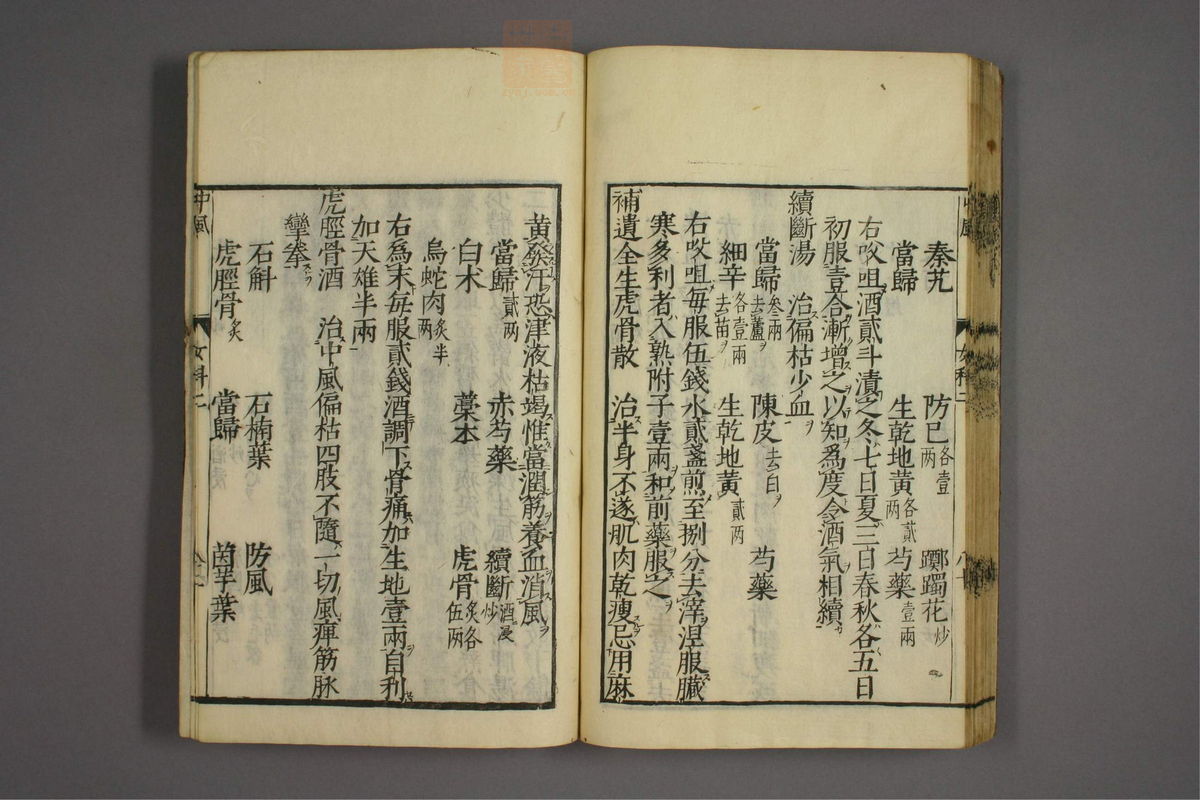 秦艽 防巳各壹兩 躑躅花炒
當歸 生乾地黃各貳兩 芍藥壹兩
右㕮咀酒貳斗漬之冬七日夏三日春秋各五日
初服壹合漸增之以知爲度令酒氣相續
續斷湯 治偏枯少血
當歸叁兩去蘆 陳皮去白 芍藥
細辛各壹兩去苗 生乾地黃貳兩
右㕮咀每服伍錢水貳盞煎至捌分去滓溫服臟
寒多利者入熟附子壹兩和前藥服之
補遺全生虎骨散 治半身不遂肌肉乾瘦忌用麻
黃發汗恐津液枯竭惟當潤筋養血消風
當歸貳兩 赤芍藥 續斷酒浸炒
白朮 藁本 虎骨炙各伍兩
烏蛇肉炙半兩
右爲末每服貳錢酒調下骨痛加生地壹兩自利
加天雄半兩
虎脛骨酒 治中風偏枯四肢不隨一切風痺筋脉
攣拳
石斛 石楠葉 防風
虎脛骨炙 當歸 茵芋葉
中風 女科二